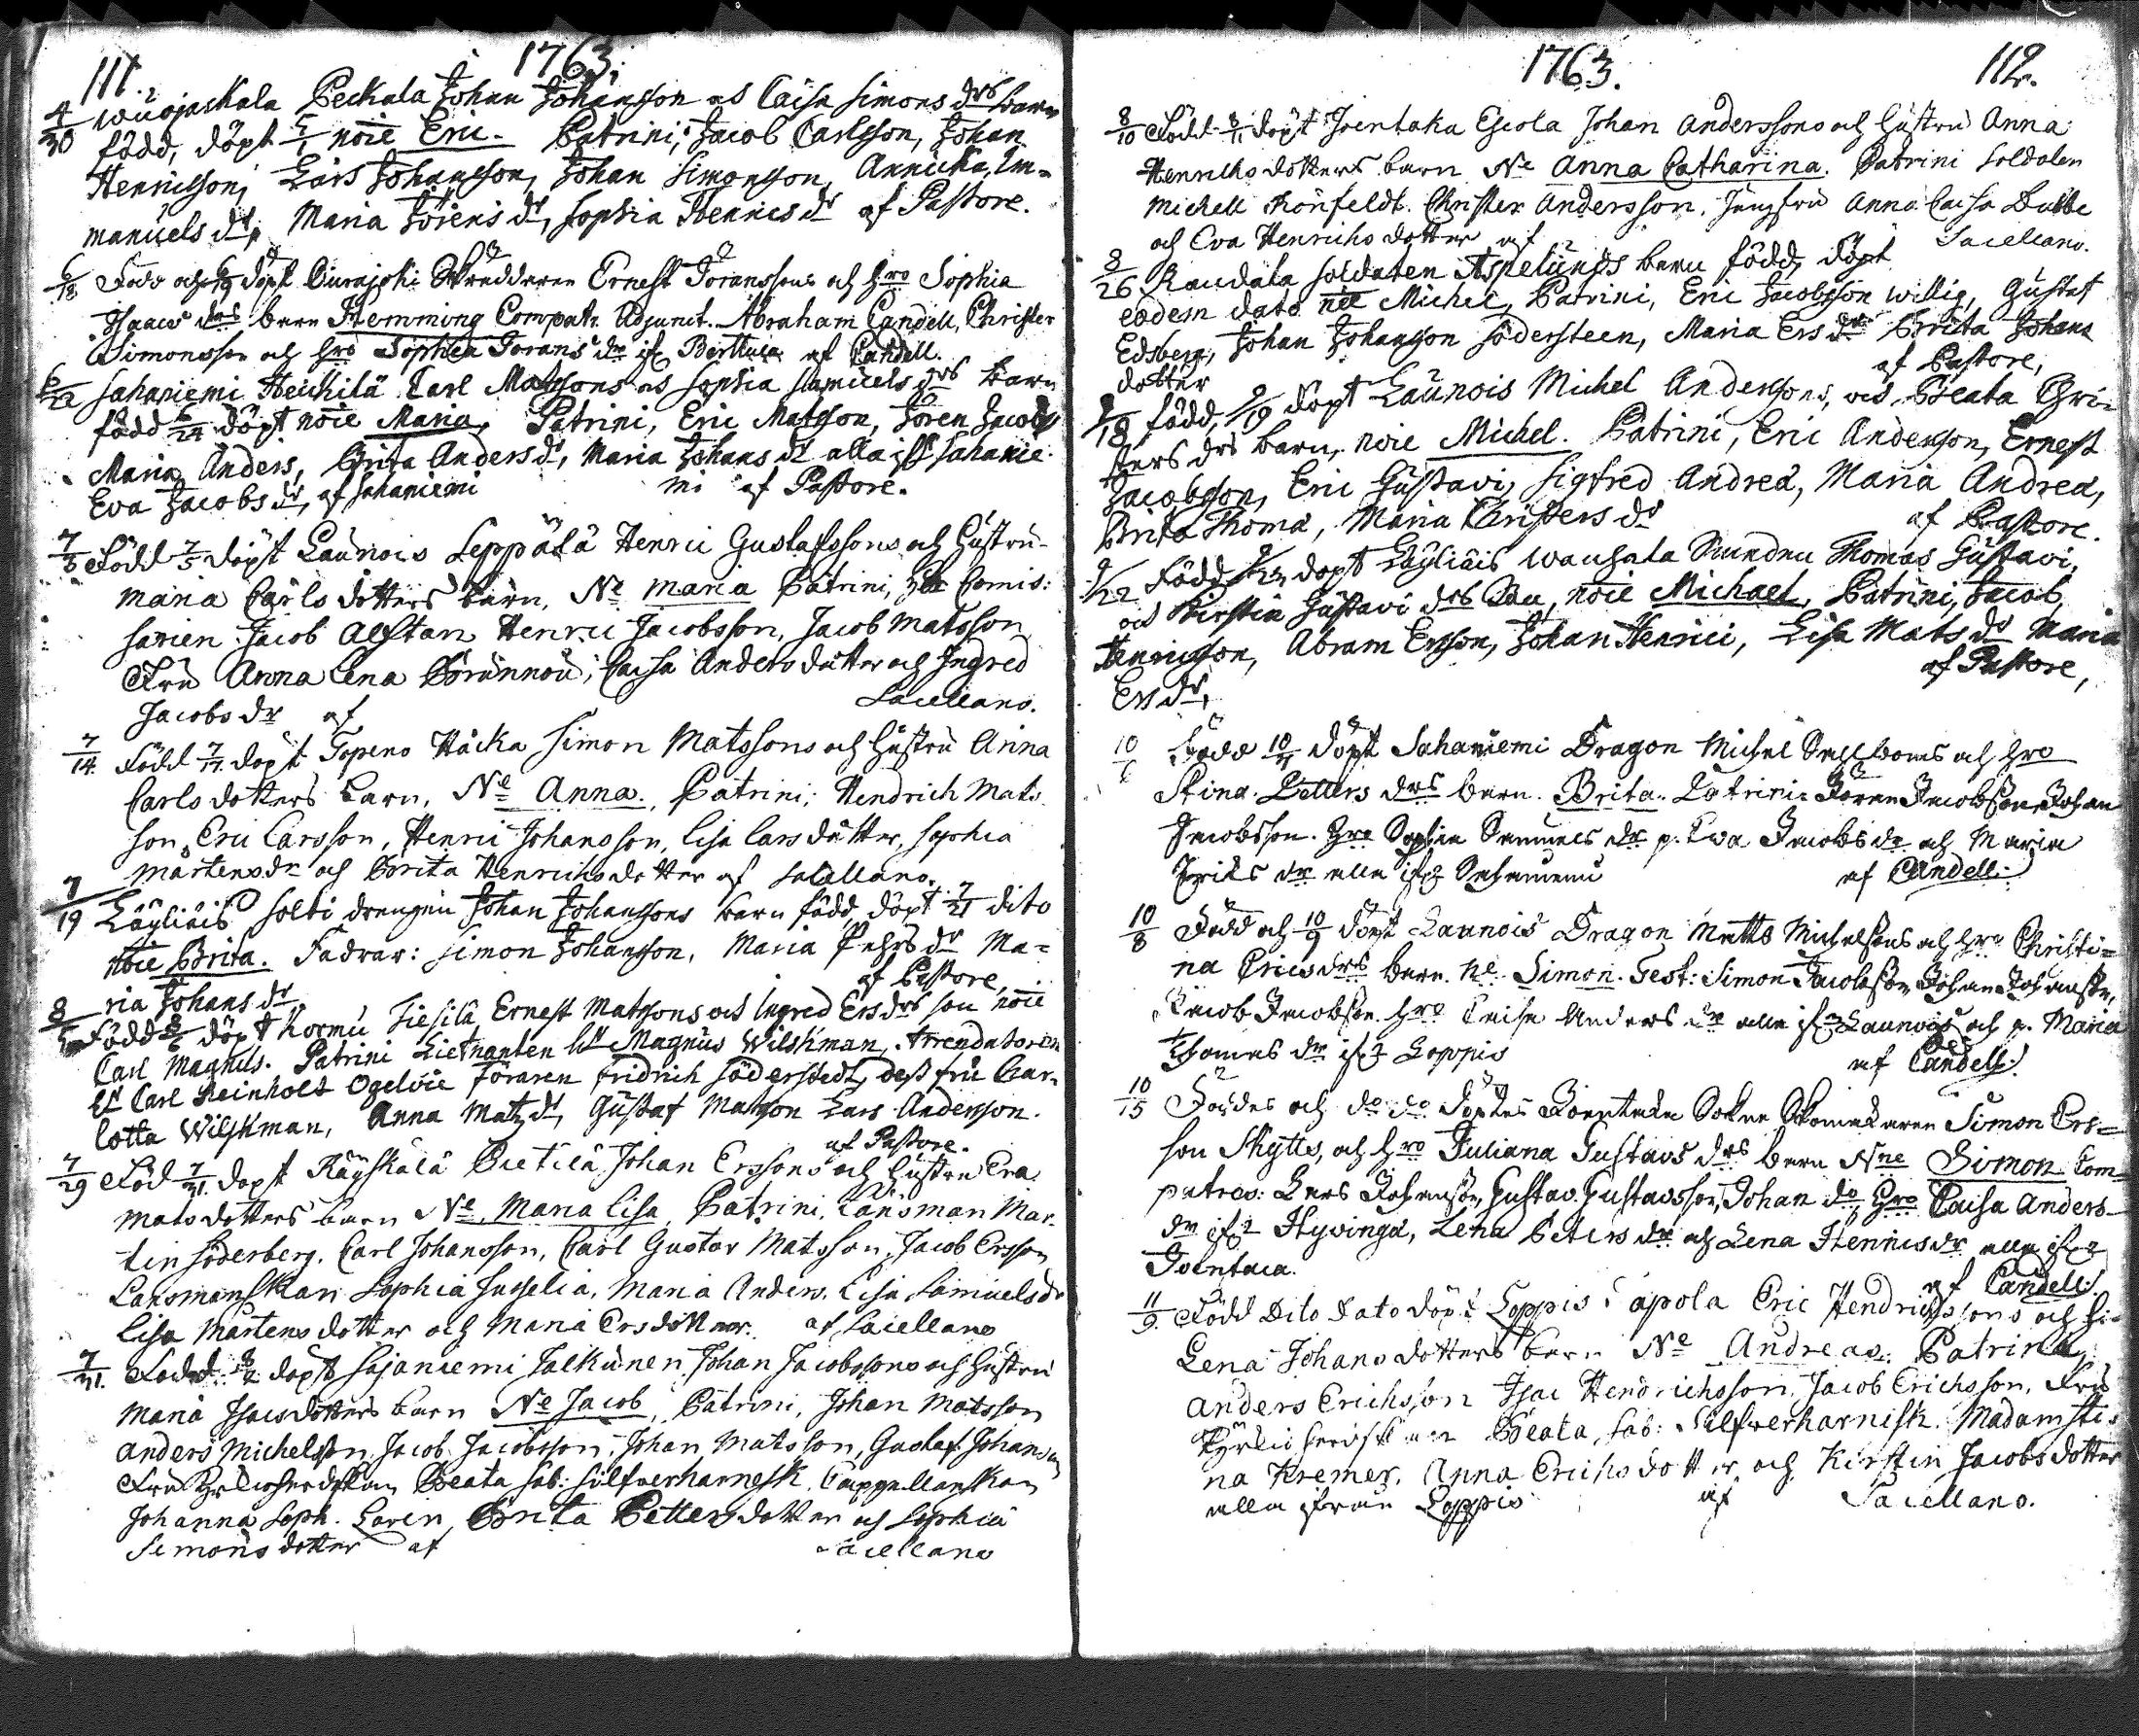 111.
1763.
4/30 Wuojaskala Peckala Johan Johansson os Caisa Simons drs barn
född, döpt 5/1 noie Eric. Patrini, Jacob Carlsson, Johan
Henricsson, Lars Johansson, Johan Simonsson, Annicka, Im=
manuels dr, Maria Jörens dr, Sophia Hennics dr af Pastore.
6/18 Född och döpt Ourajoki Skreddaren Ernest Joranssons och hro Sophia
Isaacs drs barn Hemming Compatr. Adjunct. Abraham Candell, Christer
Simonsson och hro Sophia Jorans dr af Candell.
6/22 Sahaniemi Heickilä Carl Matssons os Sophia Samuels drs barn
född 6/24 döpt noie Maria, Patrini, Eric Matsson, Jören Jacobs
Maria Anders, Brita Anders dr, Maria Johans dr alla ifr Sahanie
Eva Jacobs dr, af Sahaniemi mi af Pastore.
7/3 Född 7/5 döpt Launois Leppälä Henric Gustafssons och hustru
Maria Carls dotters barn, Ne Maria Patrini, Comis:
sarien Jacob Alftan Henric Jacobsson, Jacob Matsson
Fru Anna Lena Brunnou, Caisa Anders dotter och Ingred
Jacobs dr af Sacellano.
7/14. Född 7/17. döpt Topeno Häcka Simon Matssons och hustru Anna
Carls dotters barn, Ne Anna. Patrini, Hendrich Mats
son, Eric Carsson, Henric Johansson, Lisa Lars dotter, Sophia
Mårtens dr och Brita Henrichs dotter af Sacellano.
7/19 Läyliäis Solti drengen Johan Johanssons barn född, döpt 7/21 dito
noie Brita. Fadrar: Simon Johansson, Maria Pehrs dr Ma=
ria Johans dr af Pastore,
8/5 Född 8/6 döpt Kormu Ernest Matssons os Ingred Ers drs son noie
Carl Magnus. Patrini Lietnanten Hr Magnus Wilskman, Arrendatoren
Hr Carl Reinholt Ogelvie föraren Fridrich Söderstedt, dess fru Char=
lotta Wilskman, Anna Matz dr, Gustaf Matsson Lars Andersson.
af Pastore.
7/29 Född 7/31. döpt Räyskälä Pietilä Johan Erssons och hustru Eva
Mats dotters barn Ne Maria Lisa, Patrini, Länsman Mar
tin Söderberg, Carl Johansson, Carl Gustav Matsson, Jacob Ersson
Lansmanskan Sophia Maria Anders. Lisa Samuels dr
Lisa Mårtens dotter och Maria Ers dotter. af Sacellano
7/31. Född 8/2 döpt Sajaniemi Jalkunen Johan Jacobssons och hustru
Maria Isacs dotters barn Ne Jacob, Patrini, Johan Matsson
Anders Michelsson, Jacob Jacobsson, Johan Matsson, Gustaf Johansson
Fru Kyrkioherdskan Beata Sab: Silfverharnesk, Cappellanskan
Johanna Soph. Lovin, Brita Petters dotter och Sophia
Simons dotter af Sacellano
1763.
112.
8/10 Född 8/11 döpt Joentaka Eskola Johan Anderssons och hustru Anna
Henrichs dotters barn Ne Anna Catharina. Patrini Soldaten
Michell Rönfeldt. Christer Andersson, Jungfru Anna Caisa Dubbe
och Eva Henrichs dotter af Sacellano.
8/26 Raudala soldaten Aspelunds barn född, döpt
eodem dato noie Michel, Patrini, Eric Jacobsson Willig, Gustaf
Edsberg, Johan Johansson Södersteen, Maria Ers dr Brita Johans
dotter af Pastore,
9/18 född, 9/19 döpt Launois Michel Anderssons, os Beata Chri=
sters drs barn, noie Michel. Patrini, Eric Andersson, Ernest
Jacobsson, Eric Gustavi, Sigfred Andreæ, Maria Andreæ,
Brita Thomæ, Maria Christers dr af Pastore.
9/22 Född döpt Läyliäis Wauhala Thomas Gustavi,
os Kirstin Gustavi drs barn, noie Michael, Patrini, Jacob
Henricsson, Abram Ersson, Johan Henrici, Lisa Mats dr Maria
Ers dr, af Pastore,
10/6 Född 10/ döpt Sahaniemi Dragon Michel och hro
Stina Petters drs barn. Brita. Patrini Jören Jacobsson, Johan
Jacobsson. hro Sophia Samuels dr p. Eva Jacobs dr och Maria
Eriks dr alla ifr Sahaniemi af Candell.
10/8 Född och 10/9 döpt Launois Dragon Matts Michelssons och hro Christi=
na Erics drs barn. Ne. Simon. Test: Simon Jacobsson Johan Johansson,
Jacob Jacobsson. hro Caisa Anders dr alla ifr Launois och p. Maria
Thomas dr ifr Loppis af Candell.
10/15 Föddes och do do döptes Joentaka Sockne Skomakaren Simon Ers=
son Skytts, och hro Juliana Gustavs drs barn Nne Simon Com=
patres: Lars Johansson, Gustav Gustavsson, Johan do, hro Caisa Anders
dr ifr Hyvinge, Lena Peters dr och Lena Hennics dr alla ifr
Joentaca. af Candell.
11/9. Född Dito Dato döpt Loppis Eric Hendrichssons och H:
Lena Johans dotters barn Ne Andreas. Patrini,
Anders Erichsson Isac Hendrichsson, Jacob Erichsson, Fru
Kyrkioherdskan Beata, Sab: Silfverharnisk. Madam Sti
na Kremer, Anna Erichs dotter och Kirstin Jacobs dotter
alla ifrån Loppis af Sacellano.